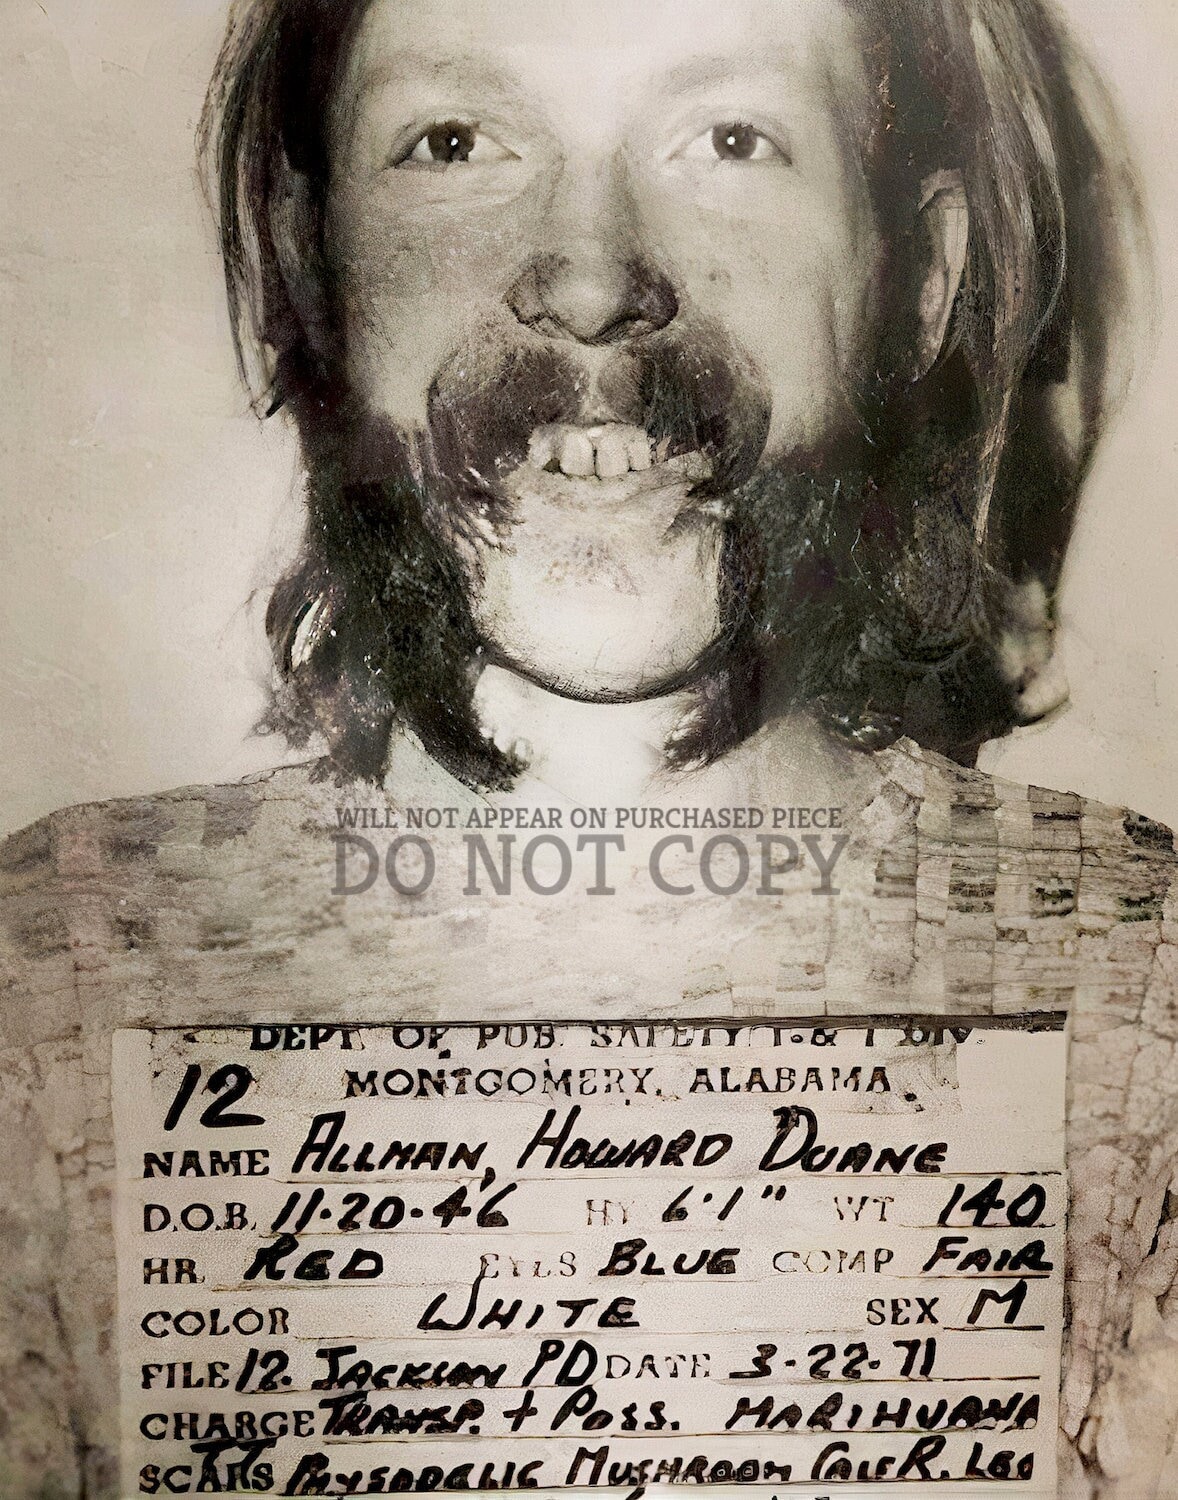 WILL NOT APPEAR ON PURCHASED PIECE
DO NOT COPY
DEPT OF PUB. SAFETY I. & I DIV.
12 MONTGOMERY, ALABAMA
NAME ALLMAN, HOWARD DUANE
D.O.B. 11-20-46 HT 6'1" WT 140
HR RED EYES BLUE COMP FAIR
COLOR WHITE SEX M
FILE 12. JACKSON PD DATE 3-22-71
CHARGE TRANSP. + POSS. MARIHUANA
SCARS MUSHROOM CALF R. LEG